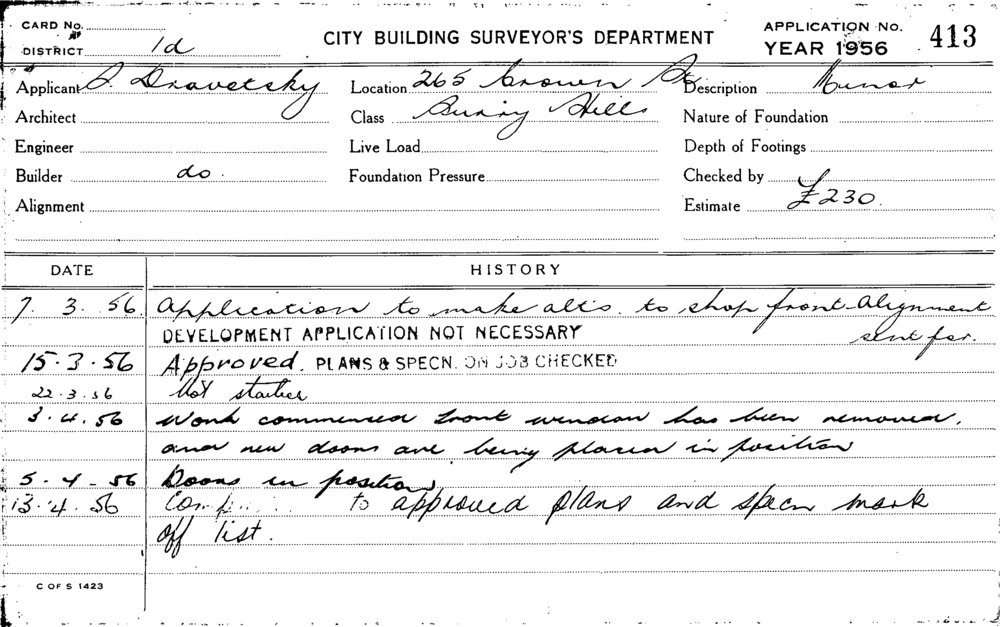 CARD No.
DISTRICT 1d
CITY BUILDING SURVEYOR'S DEPARTMENT
APPLICATION No. 413
YEAR 1956
Applicant Dravetsky Location 265 Crown Description Minor
Architect Class Surry Hills Nature of Foundation
Engineer Live Load Depth of Footings
Builder do. Foundation Pressure Checked by
Alignment Estimate £230.
DATE HISTORY
7. 3. 56. Application to make alts. to shop front Alignment
DEVELOPMENT APPLICATION NOT NECESSARY sent for.
15.3.56 Approved. PLANS & SPECN. ON JOB CHECKED
22.3.56 Not started
3.4.56 Work commenced front window has been removed,
and new doors are being placed in position
5-4-56 Doors in position
13.4.56 to approved plans and specn mark
off list.
C OF S 1423